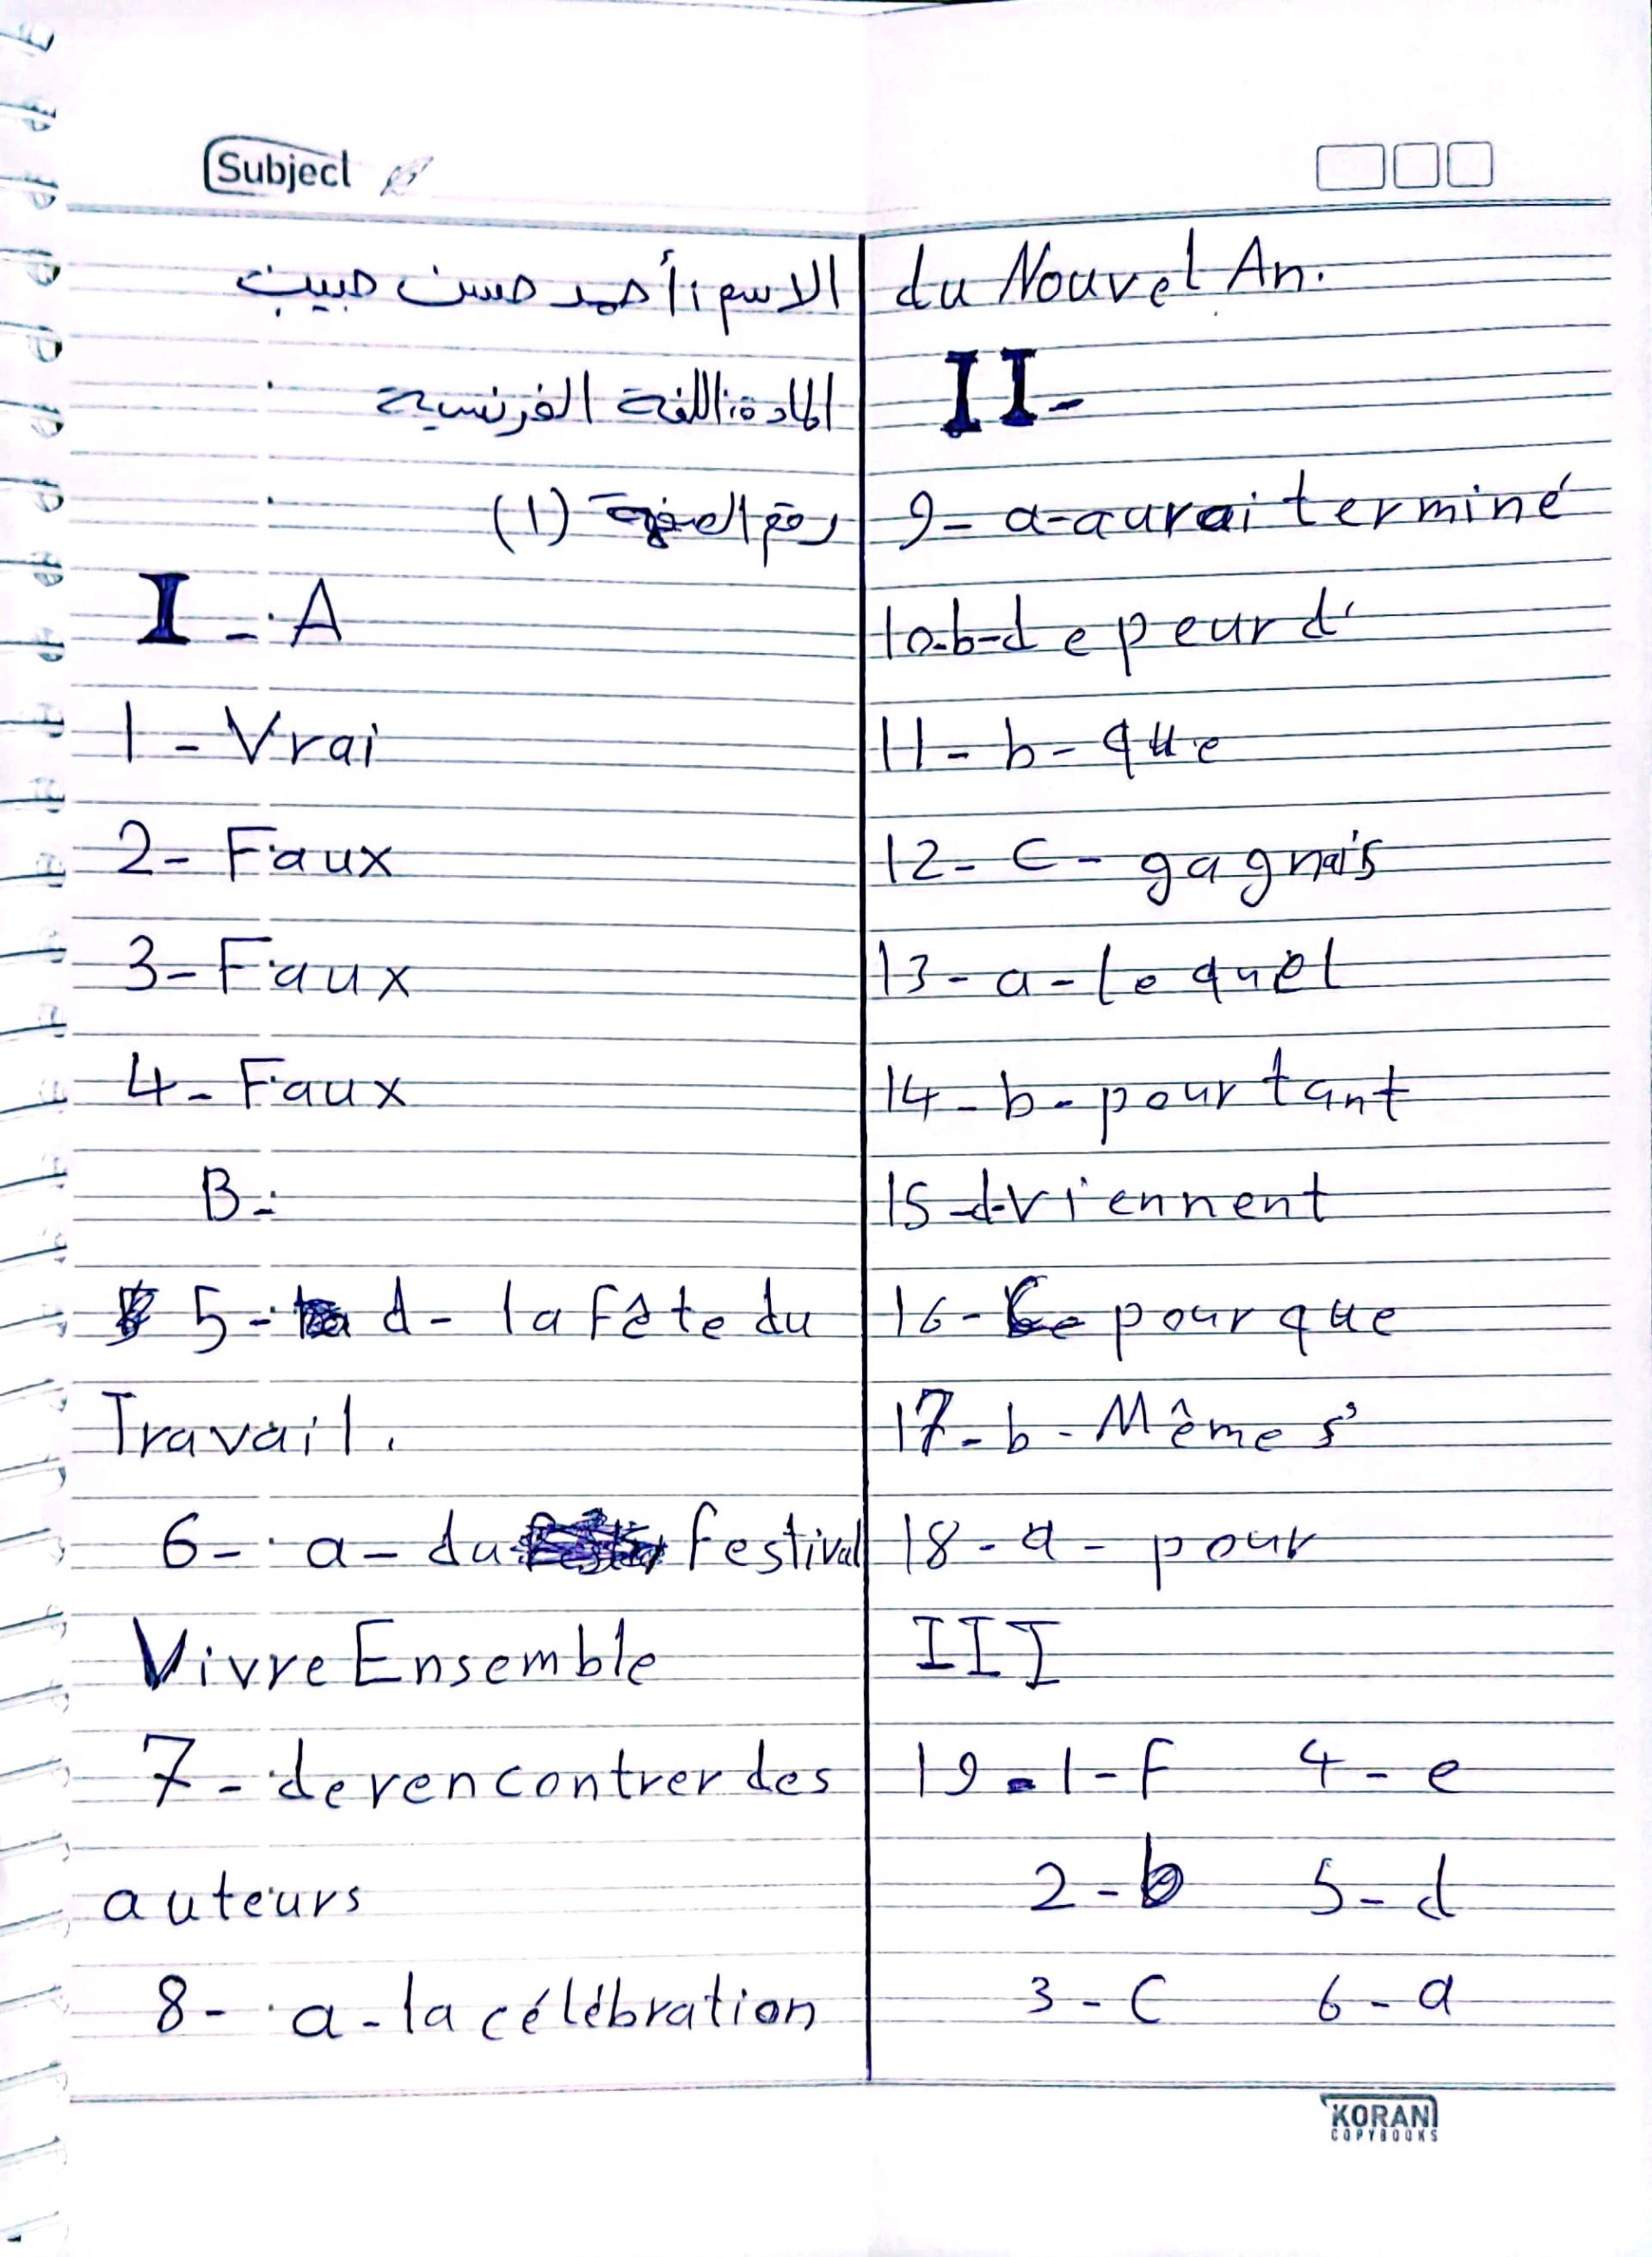 Subject
الاسم: أحمد حسن حبيب
المادة: اللغة الفرنسية
رقم الصفحة (١)
I - A
1 - Vrai
2 - Faux
3 - Faux
4 - Faux
B -
5 - d - la fête du
Travail.
6 - a - du festival
Vivre Ensemble
7 - de rencontrer des
auteurs
8 - a - la célébration
du Nouvel An.
II -
9 - a - aurai terminé
10 - b - de peur d'
11 - b - que
12 - c - gagnais
13 - a - lequel
14 - b - pourtant
15 - d - viennent
16 - pour que
17 - b - Même s'
18 - a - pour
III
19 - 1 - F 4 - e
2 - b 5 - d
3 - C 6 - a
KORAN
COPYBOOKS